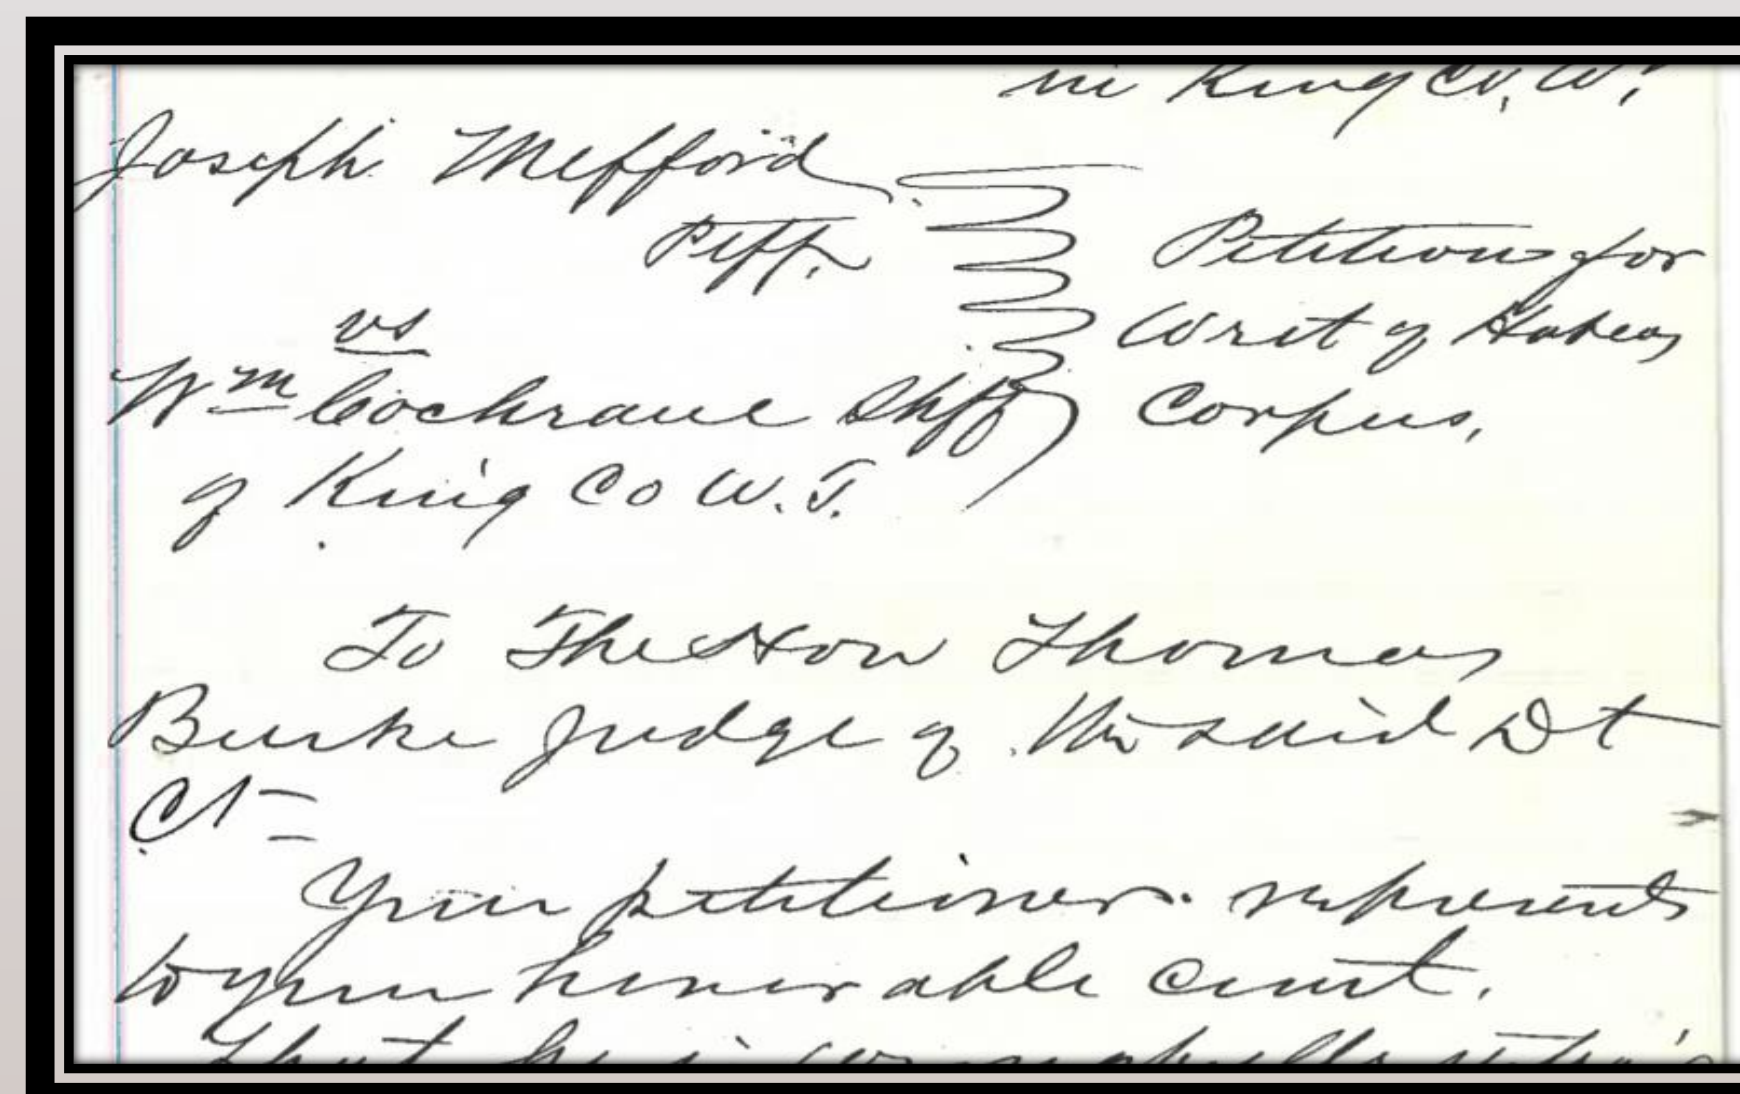 in King Co, W.
Joseph Mefford
Plff.
vs
Wm Cochrane Shff
of King Co W. T.
Petition for
Writ of Habeas
Corpus,
To The Hon Thomas
Burke Judge of the said Dt
Ct =
Your petitioner represents
to your honorable court.
That he is